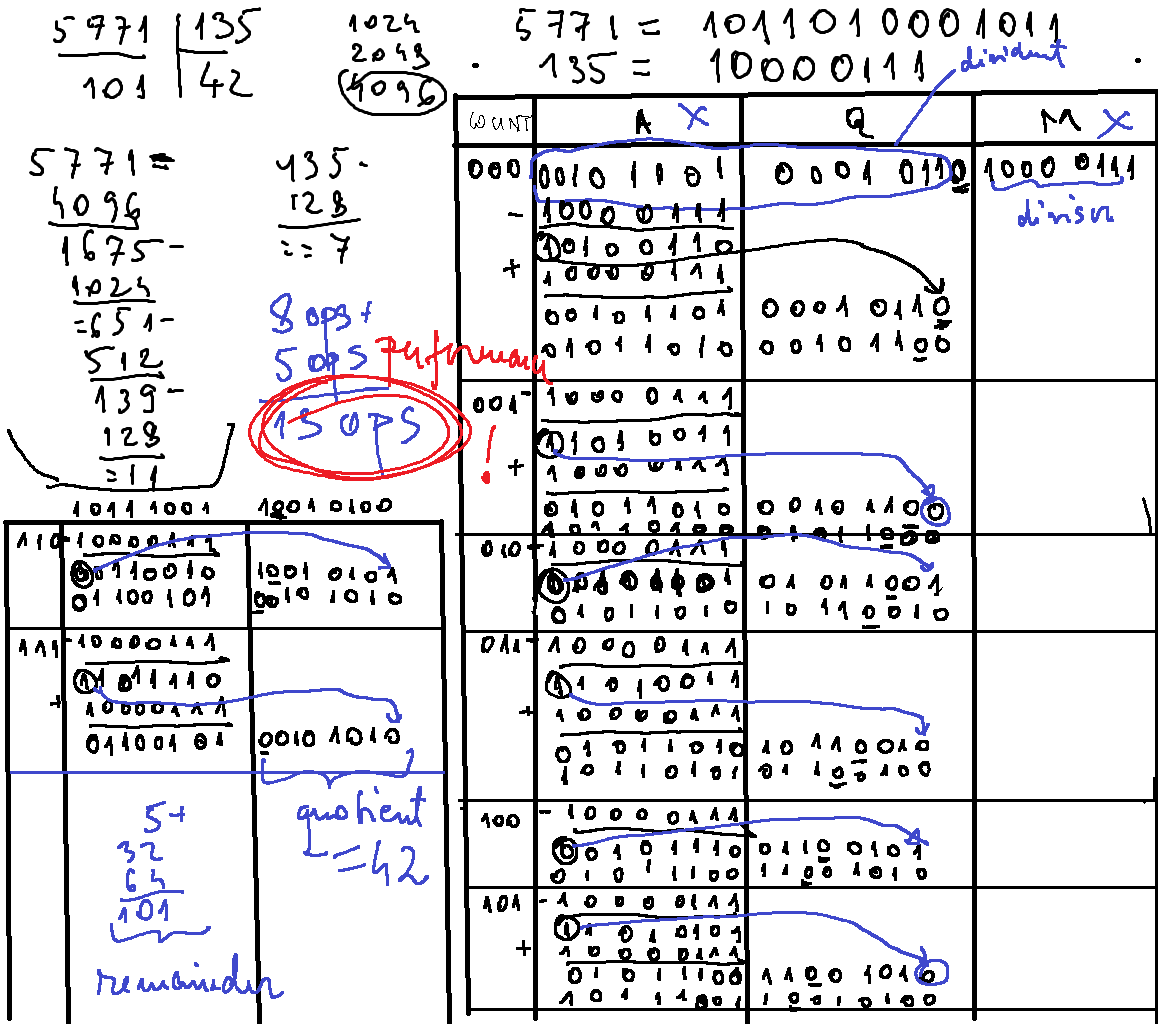 5771 | 135
101 | 42
1024
2048
4096
5771 = 1011010001011
135 = 10000111
dividend
5771=
4096
1675-
1024
=651-
512
139-
128
=11
135-
128
==7
8 ops+
5 ops
13 ops
performance
!
COUNT A X Q M X
000 0010 1101 0001 0110 1000 0111
divisor
- 1000 0111
1010 0110
+ 1000 0111
0010 1101 0001 0110
0101 1010 0010 1100
001 - 1000 0111
1101 0011
+ 1000 0111
01011010 0010 1100
10110100 0101 1000
010 - 1000 0111
00101101 01 011001
01011010 10 110010
011 - 10000111
11010011
+ 10000111
01011010 10110010
10110101 01100100
100 - 10000111
00101110 0110 0101
01011100 1100 1010
101 - 10000111
11010101
+ 10000111
01011100 1100 1010
10111001 10010100
10111001 10010100
110 - 10000111
00110010 1001 0101
01100101 0010 1010
111 - 10000111
11011110
+ 10000111
01100101 0010 1010
quotient
=42
5+
32
64
101
remainder